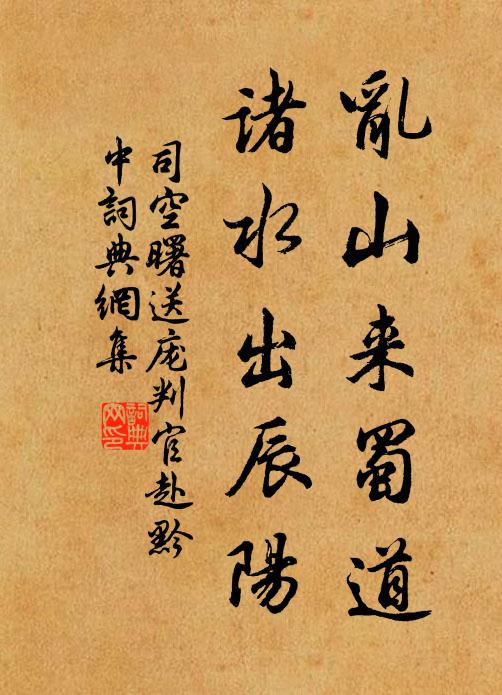 亂山来蜀道
諸水出辰陽
司空曙送庞判官赴黔
中詞典網集
詞典
网印